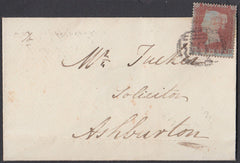 Mr Tucker
Solicitor
Ashburton